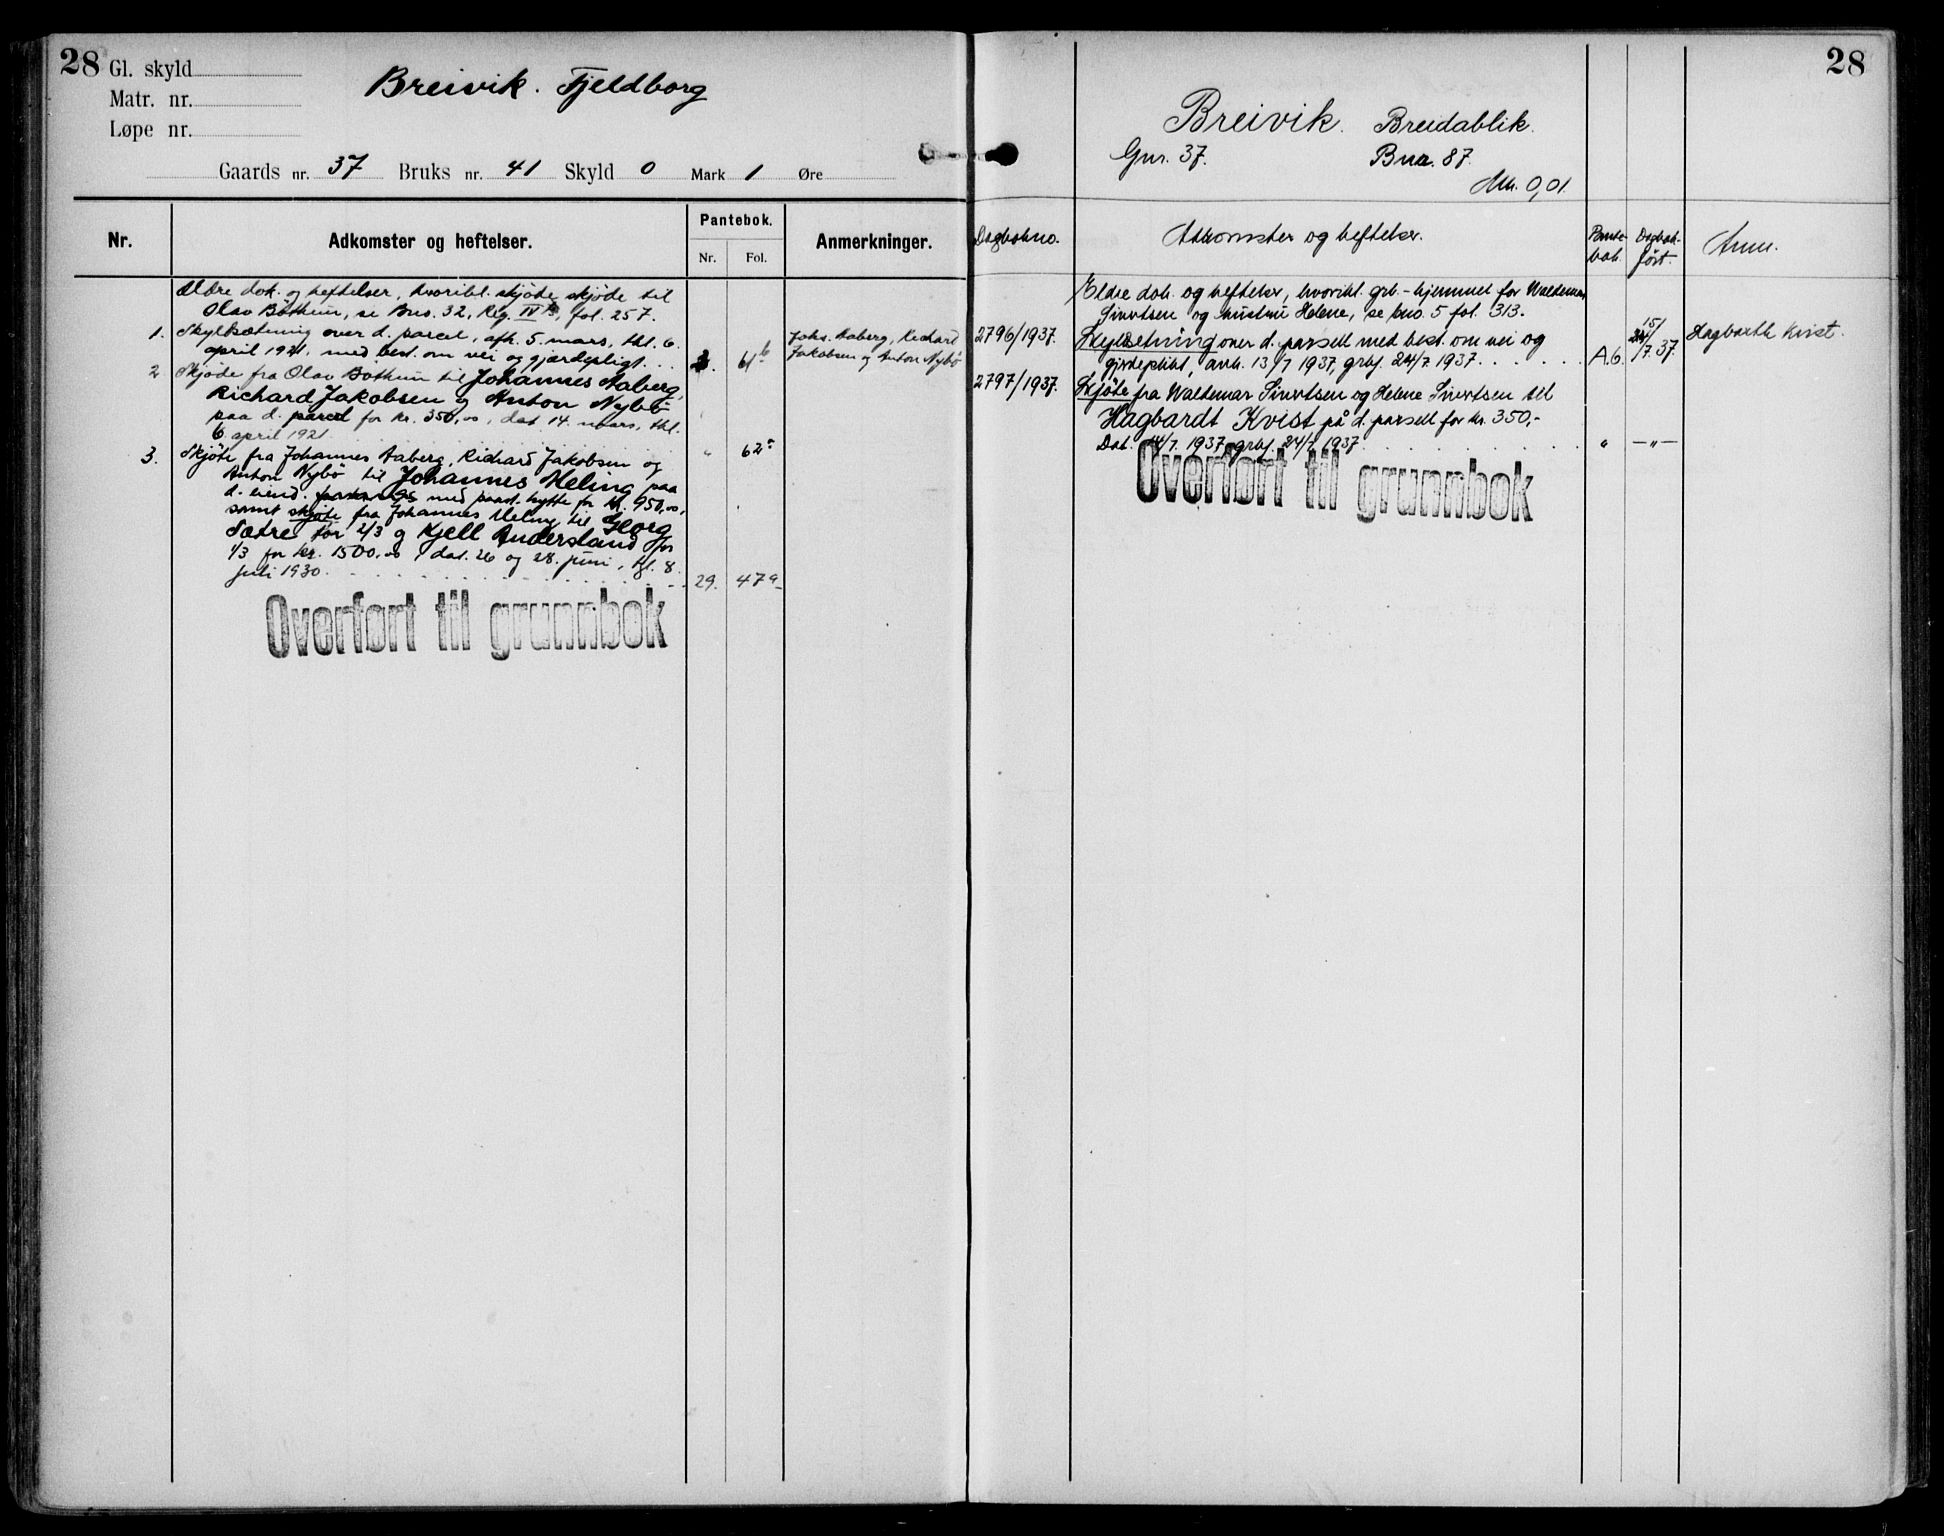 28
Gl. skyld
Matr. nr.
Løpe nr.
Breivik. Fjeldborg
Gaards nr. 37 Bruks nr. 41 Skyld 0 Mark 1 Øre
Nr.
Adkomster og heftelser.
Pantebok.
Nr. Fol.
Anmerkninger.
Ældre dok. og heftelser, hvoribl. skjøde skjøde til
Olav Bøthun, se Bno. 32, Reg. IV B, fol. 257.
1. Skyldsætning over d. parcel, afh. 5. mars, thl. 6.
april 1921, med best. om vei og gjærdepligt. . . 61 b
Johs. Aaberg, Richard
Jakobsen og Anton Nybø
2. Skjøde fra Olav Bøthun til Johannes Aaberg,
Richard Jakobsen og Anton Nybø
paa d. parcel for kr. 350,00, dat 14. mars, thl.
6 april 1921 " 62
3. Skjøte fra Johannes Aaberg, Richard Jakobsen og
Anton Nybø til Johannes Heling paa
d. eiend. med paast. hytte for kr. 950,00,
samt skjøte fra Johannes Heling til Georg
Sætre for 2/3 og Kjell Andersland for
1/3 for kr. 1500,00, dat. 26 og 28. juni, tgl. 8.
juli 1930. 29. 47 a
Overført til grunnbok
28
Breivik. Breidablik.
Gnr. 37. Bnr. 87.
Mk. 0,01.
Dagbokno.
Adkomster og heftelser.
Pante-
bok.
Dagbok-
ført.
Anm.
Eldre dok. og heftelser, hvoribl. grb.-hjemmel for Waldemar
Sivertsen og hustru Helene, se bno. 5 fol. 313.
2796/1937. Skyldsetning over d. parsell med best. om vei og
gjerdeplikt, avh. 13/7 1937, grbf. 24/7. 1937. . . . . . A.6. 15/7. 37.
Hagbarth Kvist.
2797/1937. Skjøte fra Waldemar Sivertsen og Helene Sivertsen til
Hagbardt Kvist på d. parsell for kr. 350,-
Dat. 14/7. 1937, grbf. 24/7 1937. " —"—
Overført til grunnbok